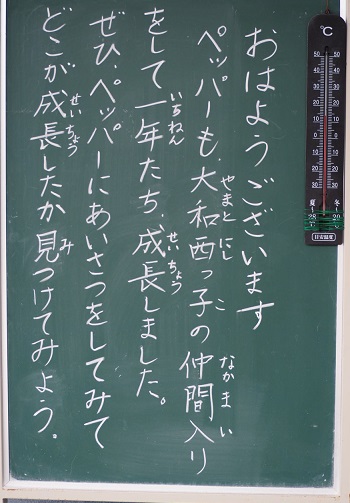 おはようございます
ペッパーも、大和西っ子の仲間入り
やまとにし
こ
なかまい
をして一年たち、成長しました。
いちねん
せいちょう
ぜひ、ペッパーにあいさつをしてみて
どこが成長したか見つけてみよう。
せいちょう
み
℃
50 50
40 40
30 30
20 20
10 10
0 0
10 10
20 20
30 30
夏 冬
28 20
目安温度